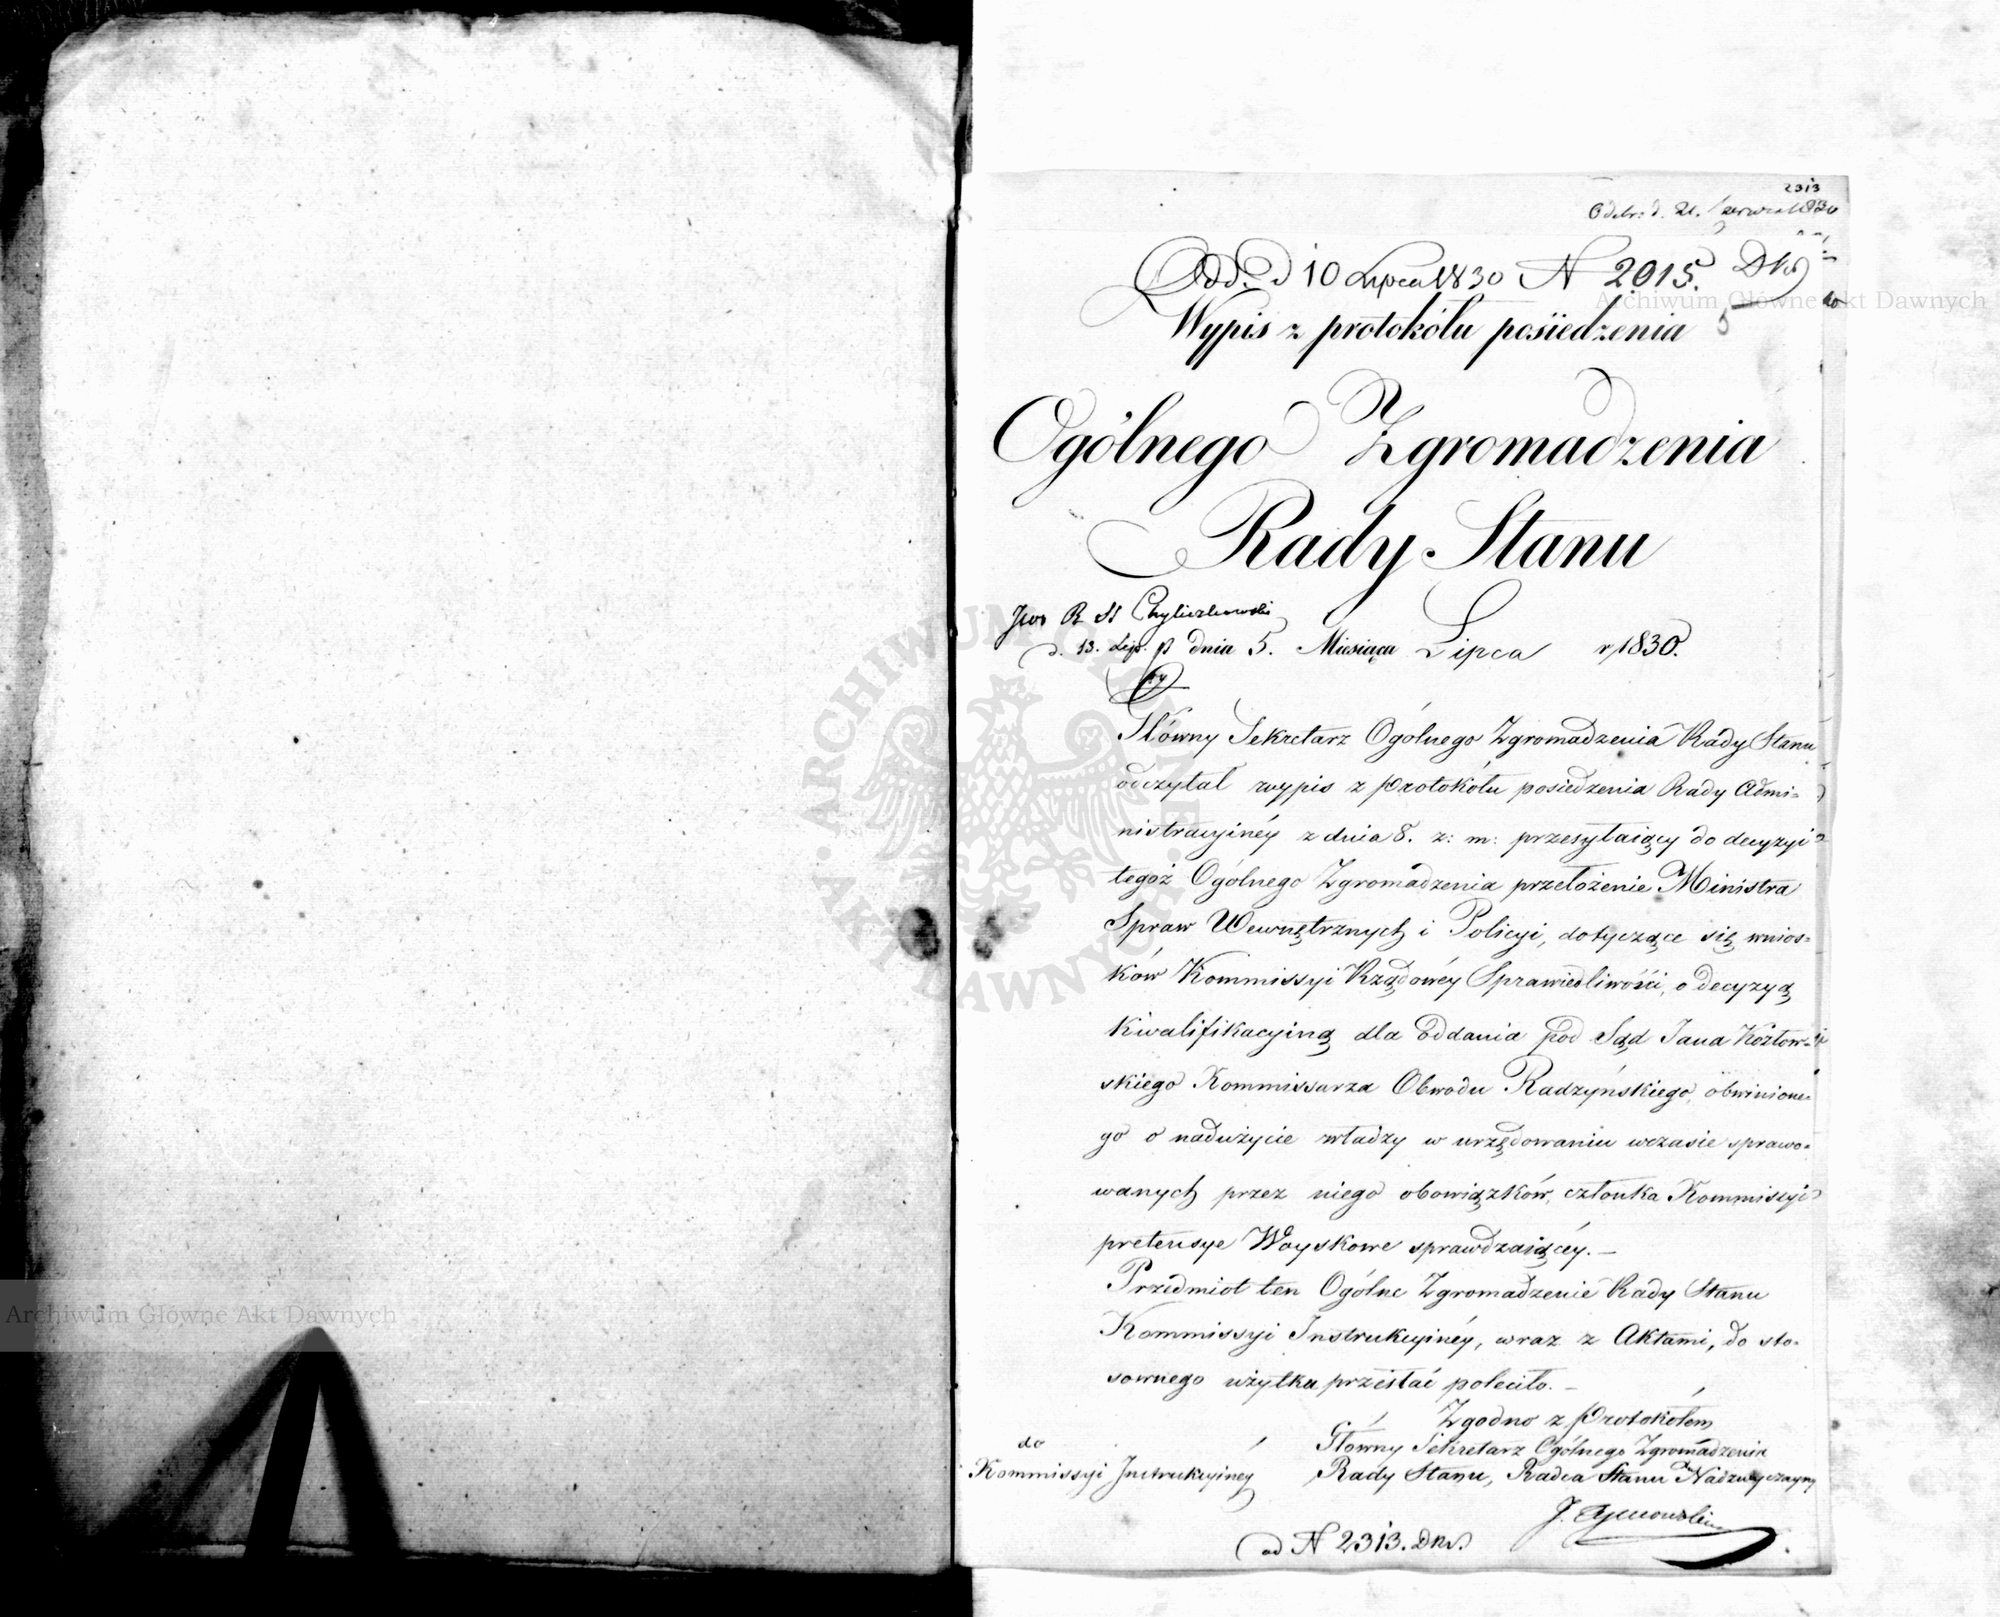 2313
Odebr: d. 21. Czerwca 1830
Odd. d 10 Lipca 1830 N 2015. Dks
Wypis z protokółu posiedzenia
Ogólnego Zgromadzenia
Rady Stanu
Jwo R St Chyliczkowski
d. 13. Lip. dnia 5. Miesiąca Lipca r 1830.
Główny Sekretarz Ogólnego Zgromadzenia Rady Stanu
odczytał wypis z Protokółu posiedzenia Rady Admi=
nistracyinéy z dnia 8. z: m: przesyłaiący do decyzyi
tegoż Ogólnego Zgromadzenia przełożenie Ministra
Spraw Wewnętrznych i Policyi, dotyczące się wnios=
ków Kommissyi Rządowéy Sprawiedliwości, o decyzyą
kwalifikacyiną dla oddania pod Sąd Jana Kozłow=
skiego Kommissarza Obwodu Radzyńskiego, obwinione=
go o nadużycie władzy w urzędowaniu wczasie sprawo=
wanych przez niego obowiązków, członka Kommissyi
pretensye Woyskowe sprawdzaiącéy. —
Przedmiot ten Ogólne Zgromadzenie Rady Stanu
Kommissyi Instrukcyinéy, wraz z Aktami, do sto=
sownego użytku przesłać poleciło. —
Zgodno z Protokółem
Główny Sekretarz Ogólnego Zgromadzenia
Rady Stanu, Radca Stanu Nadzwyczayny
do
Kommissyi Instrukcyiney
J. Tymowski
ad N 2313. Dks.
Archiwum Główne Akt Dawnych
Archiwum Główne Akt Dawnych
ARCHIWUM GŁÓWNE AKT DAWNYCH